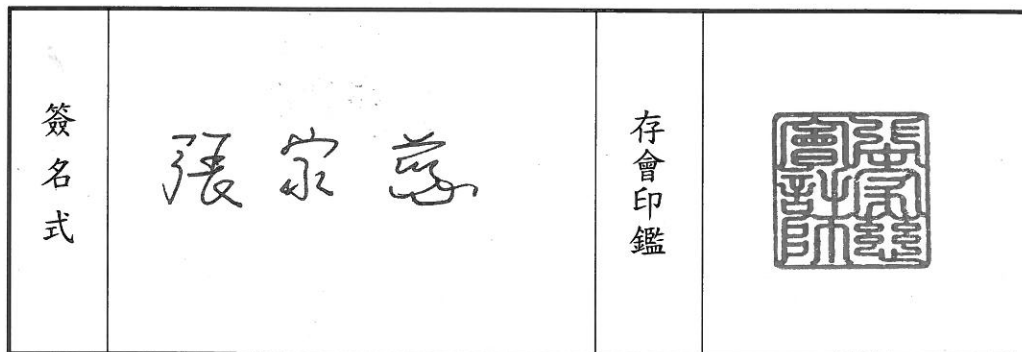 簽名式
張家慈
存會印鑑
張家慈
會計師